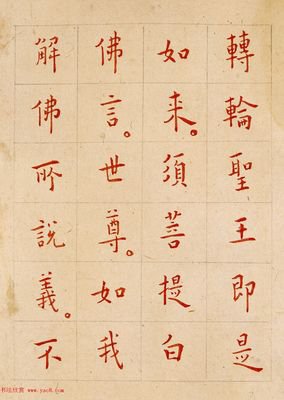 轉輪聖王即是
如来。須菩提白
佛言。世尊。如我
解佛所說義。不
书法欣赏 www.yac8.com